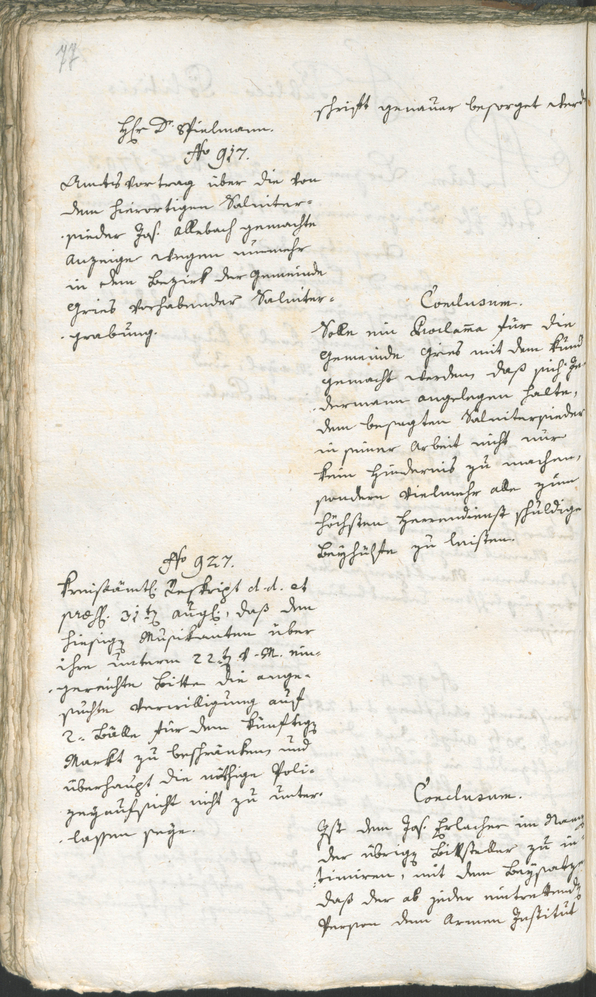 77
schrift genauer besorget werd
Hhr Dr. Spielmann.
No 917.
Amtsvortrag über die von
dem hierortigen Saliniter-
sieder Jos. Allebach gemachte
Anzeige wegen nunmehr
in dem Bezirk der Gemeinde
Gries vorhabender Saliniter-
grabung.
Conclusum.
Solle ein Proclama für die
Gemeinde Gries mit dem kund
gemacht werden, daß sich Je-
dermann angelegen halte,
dem besagten Salnitersieder
in seiner Arbeit nicht nur
kein Hindernis zu machen,
sondern vielmehr alle zum
höchsten Herrendienst schuldige
Beyhülfe zu leisten.
No 927.
Kreisämtl. Reskript d. d. et
præs. 31ten augl., daß dem
hiesigen Musikanten über
ihre unterm 22ten v. M. ein-
gereichte Bitte die ange-
suchte Verwilligung auf
2. Bälle für dem künftigen
Markt zu beschränken und
überhaupt die nöthige Poli-
zeyaufsicht nicht zu unter-
lassen seye.
Conclusum.
Ist dem Jos. Erlacher im Nam
der übrigen Bittsteller zu in
timiren, mit dem Beysatze
daß der ab jeder eintrettend
Person dem Armen Institut